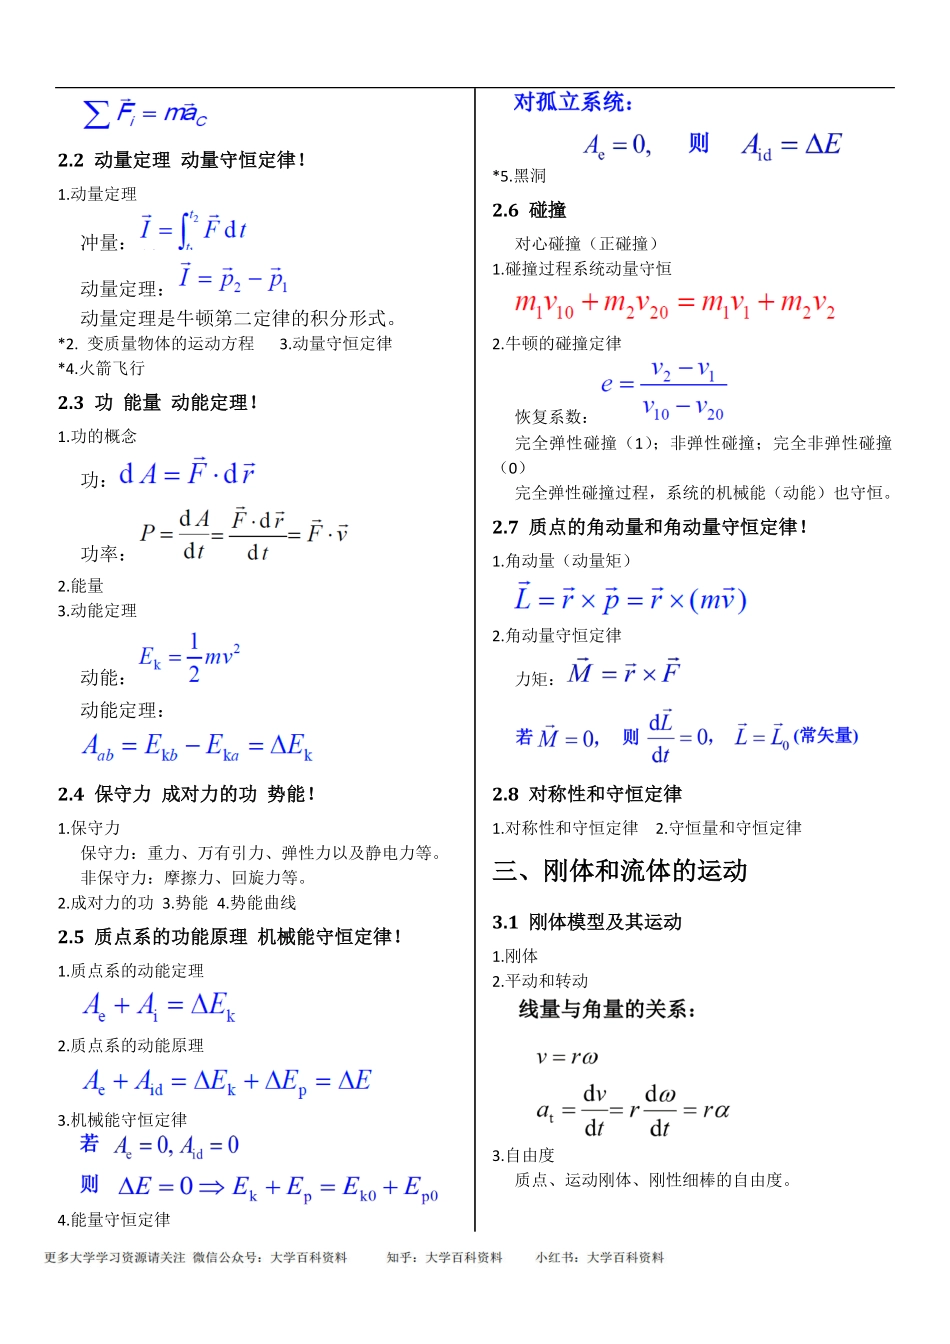 ∑F⃗ᵢ = ma⃗_C
2.2 动量定理 动量守恒定律！
1.动量定理
冲量：I⃗ = ∫_{t₁}^{t₂} F⃗ dt
动量定理：I⃗ = p⃗₂ − p⃗₁
动量定理是牛顿第二定律的积分形式。
*2. 变质量物体的运动方程 3.动量守恒定律
*4.火箭飞行
2.3 功 能量 动能定理！
1.功的概念
功：dA = F⃗·dr⃗
功率：P = dA/dt = F⃗·dr⃗/dt = F⃗·v⃗
2.能量
3.动能定理
动能：E_k = 1/2 mv²
动能定理：
A_ab = E_kb − E_ka = ΔE_k
2.4 保守力 成对力的功 势能！
1.保守力
保守力：重力、万有引力、弹性力以及静电力等。
非保守力：摩擦力、回旋力等。
2.成对力的功 3.势能 4.势能曲线
2.5 质点系的功能原理 机械能守恒定律！
1.质点系的动能定理
A_e + A_i = ΔE_k
2.质点系的动能原理
A_e + A_id = ΔE_k + ΔE_p = ΔE
3.机械能守恒定律
若 A_e = 0, A_id = 0
则 ΔE = 0 ⇒ E_k + E_p = E_k0 + E_p0
4.能量守恒定律
对孤立系统：
A_e = 0, 则 A_id = ΔE
*5.黑洞
2.6 碰撞
对心碰撞（正碰撞）
1.碰撞过程系统动量守恒
m₁v₁₀ + m₂v₂₀ = m₁v₁ + m₂v₂
2.牛顿的碰撞定律
恢复系数：e = (v₂ − v₁)/(v₁₀ − v₂₀)
完全弹性碰撞（1）；非弹性碰撞；完全非弹性碰撞
（0）
完全弹性碰撞过程，系统的机械能（动能）也守恒。
2.7 质点的角动量和角动量守恒定律！
1.角动量（动量矩）
L⃗ = r⃗ × p⃗ = r⃗ × (mv⃗)
2.角动量守恒定律
力矩：M⃗ = r⃗ × F⃗
若 M⃗ = 0， 则 dL⃗/dt = 0， L⃗ = L⃗₀ (常矢量)
2.8 对称性和守恒定律
1.对称性和守恒定律 2.守恒量和守恒定律
三、刚体和流体的运动
3.1 刚体模型及其运动
1.刚体
2.平动和转动
线量与角量的关系：
v = rω
a_t = dv/dt = r dω/dt = rα
3.自由度
质点、运动刚体、刚性细棒的自由度。
更多大学学习资源请关注 微信公众号：大学百科资料 知乎：大学百科资料 小红书：大学百科资料